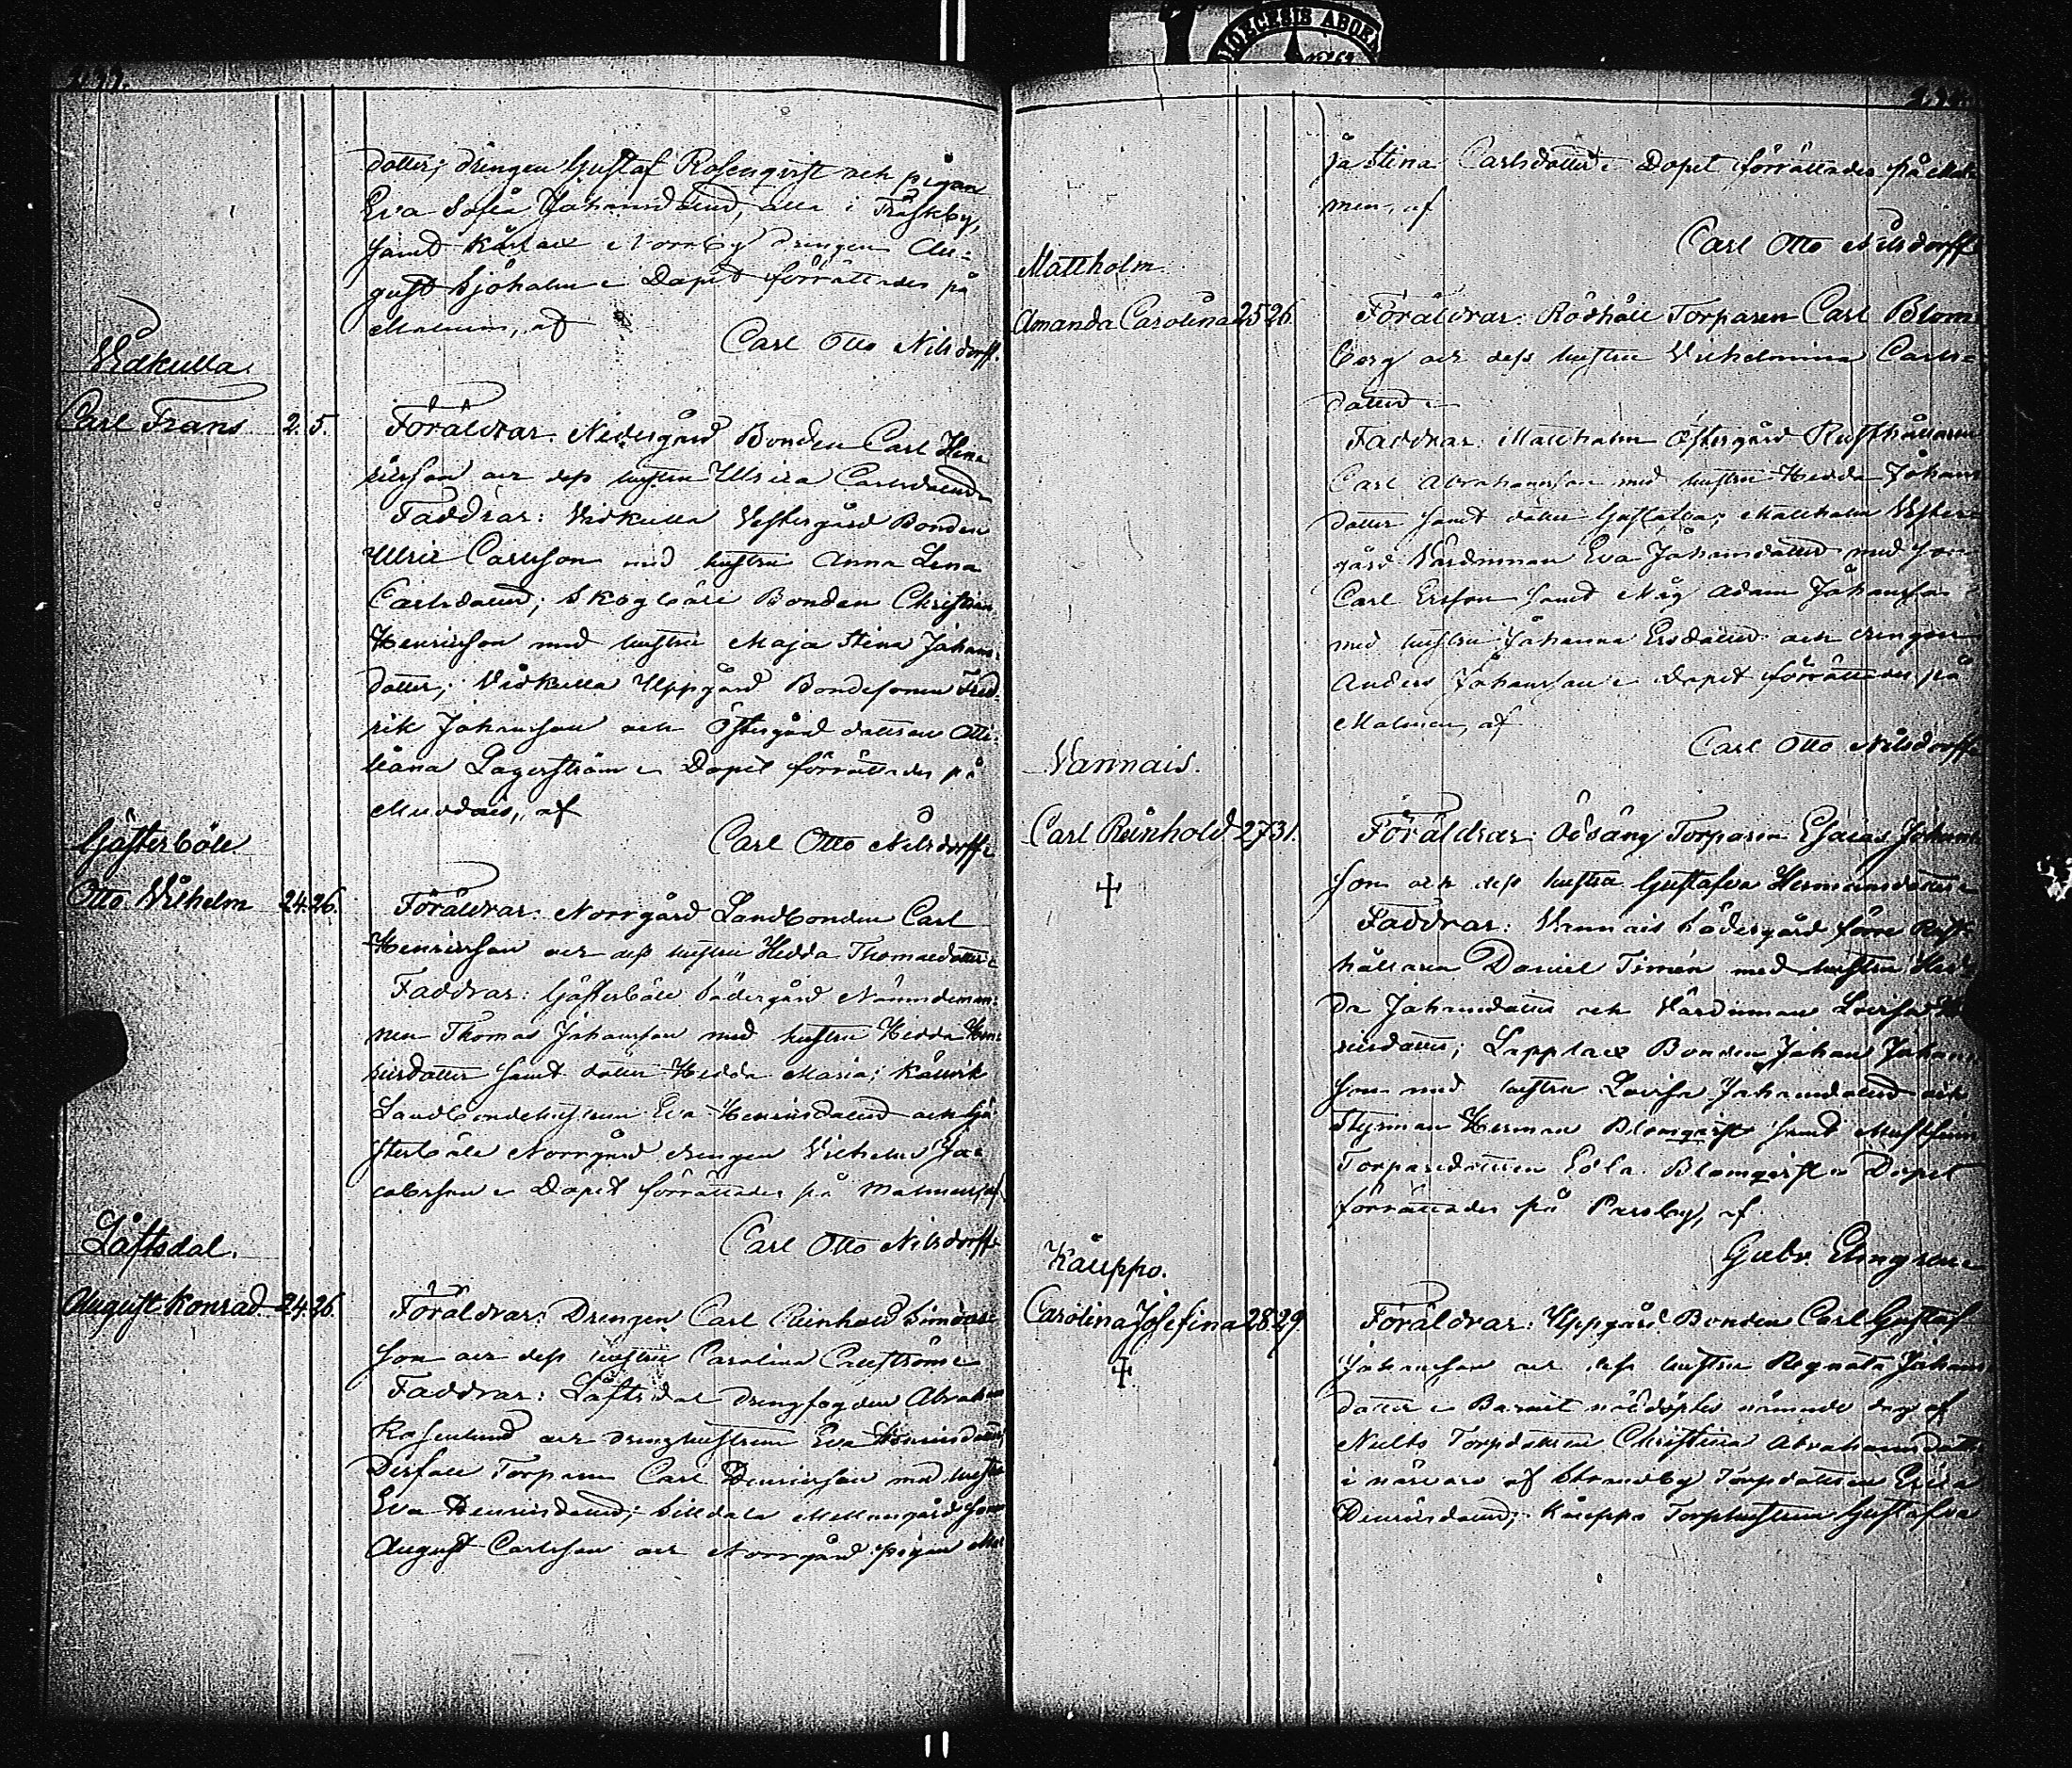 DIOECESIS ABOEN
dotter; drengen Gustaf Rosenqvist och pigan
Eva Sofia Johansdotter, alla i Träskby,
samt Kårlax Norrby drengen Au-
gust Sjöholm. Dopet förrättades på
Malmen, af
Carl Otto Nilsdorff.
Vidkulla
Carl Frans 2. 5.
Föräldrar: Nedergård Bonden Carl Hen-
ricsson och dess hustru Ulrica Carlsdotter
Faddrar: Vidkulla Vestergård Bonden
Ulric Carlsson med hustru Anna Lena
Carlsdotter; Skogböle Bonden Christian
Henricsson med hustru Maja Stina Johans-
dotter; Vidkulla Uppgård Bondesonen Fred-
rik Johansson och Östergård dottren Otti-
liana Lagerström. Dopet förrättades på
Muddais, af
Carl Otto Nilsdorff
Gästerböle
Otto Vilhelm 24. 26.
Föräldrar: Norrgård Landbonden Carl
Henricsson och dess hustru Hedda Thomasdotter
Faddrar: Gästerböle Södergård Nämndeman-
nen Thomas Johansson med hustru Hedda Hen-
ricsdotter samt dotter Hedda Maria; Källvik
Landbondehustrun Eva Henricsdotter och Gä-
sterböle Norrgård drengen Vilhelm Ja-
cobsson. Dopet förrättades på Malmen, af
Carl Otto Nilsdorff
Löftsdal.
August Konrad 24. 26.
Föräldrar: Drengen Carl Reinhold Simons-
son och dess hustru Carolina Carlström
Faddrar: Löftsdal drengfogden Abraham
Rosenlund och drenghustrun Eva Henricsdotter
Torparen Carl Henricsson med hustru
Eva Henricsdotter; Silldala Mellangård sonen
August Carlsson och Norrgård pigan Ma-
ja Stina Carlsdotter. Dopet förrättades på Mal-
men, af
Carl Otto Nilsdorff
Mattholm.
Amanda Carolina 25 26.
Föräldrar: Rödhäll Torparen Carl Blom-
berg och dess hustru Vilhelmina Carls-
dotter
Faddrar: Mattholm Östergård Rusthållaren
Carl Abrahamsson med hustru Hedda Johans-
dotter samt dotter Gustafva; Mattholm Vester-
gård Värdinnan Eva Johansdotter med son
Carl Ersson samt Måg Adam Johansson
med hustru Johanna Ersdotter och drengen
Anders Johansson. Dopet förrättades på
Malmen, af
Carl Otto Nilsdorff
Vannais.
Carl Reinhold 27 31.
Föräldrar: Ödsäng Torparen Esaias Johans-
son och dess hustru Gustafva Hermansdotter
Faddrar: Vannais Södergård förre Rust-
hållaren Daniel Timén med hustru Hed-
da Johansdotter och Värdinnan Lovisa
ricsdotter; Lapplax Bonden Johan Johans-
son med hustru Lovisa Johansdotter och
Styrman Herman Blomqvist samt
Torparedottren Blomqvist. Dopet
förrättades på Parsby, af
Gabr. Elmgren
Käuppo.
Carolina Josefina 28. 29.
Föräldrar: Uppgård Bonden Carl Gustaf
Johansson och dess hustru Regnata Johans-
dotter. Barnet nöddöptes nämnde dag af
Nulto Torpdottren Christina Abrahamsdotter
i närvaro af Strandby Torpdottren Erica
Henricsdotter; Käuppo Torphustrun Gustafva